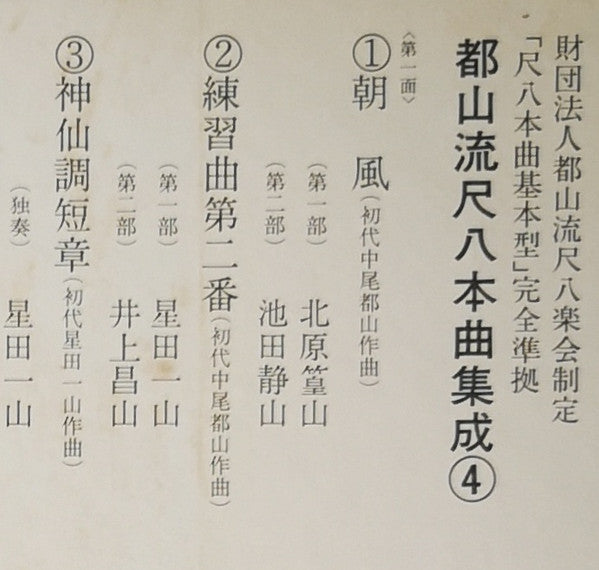 財団法人都山流尺八楽会制定
「尺八本曲基本型」完全準拠
都山流尺八本曲集成④
〈第一面〉
①朝　風（初代中尾都山作曲）
（第一部）　北原篁山
（第二部）　池田静山
②練習曲第二番（初代中尾都山作曲）
（第一部）　星田一山
（第二部）　井上昌山
③神仙調短章（初代星田一山作曲）
（独奏）　星田一山